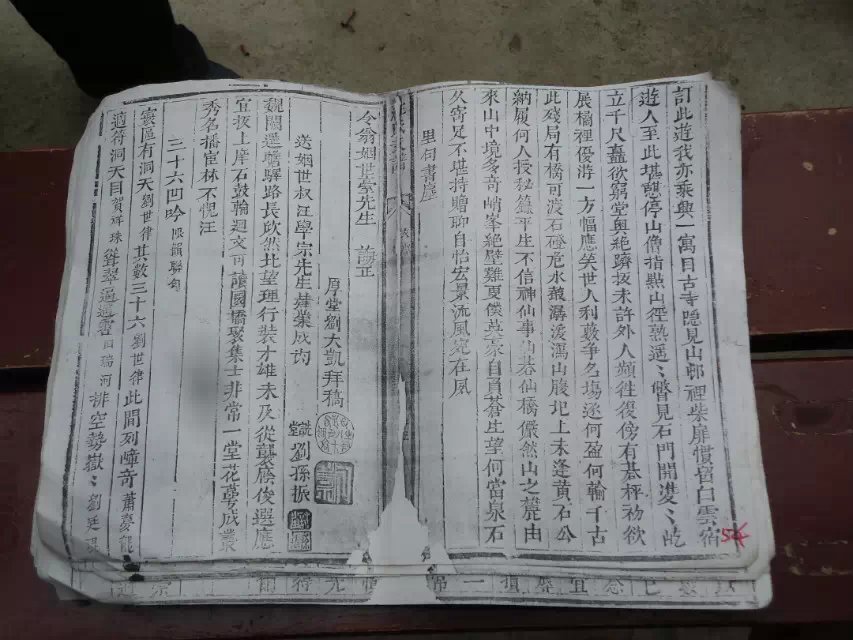 訂此遊我亦乘興一寓目古寺隱見山邨裡柴扉慣留白雲宿
遊人至此堪憩停山僧指點山徑熟遥〻瞥見石門開雙〻屹
立千尺矗欲窮堂奥絶躋扳未許外人頻往復傍有棊枰初欲
展橘裡優游一方幅應笑世人利藪爭名塲逐何盈何輸千古
此殘局有橋可渡石磴危水聲潺湲瀉山腹圯上未逢黄石公
納履何人授秘籙平生不信神仙事仙碁仙橋儼然山之麓由
來山中境多奇峭峯絶壁難更僕英豪自負蒼生望何當泉石
久寄足不堪持贈聊自怡宏景流風宛在夙
里何書屋
令翁姻世臺先生 誨正
厚堂劉大凱拜稿
送姻世叔汪學宗先生肄業成均
識堂劉孫振
魏闕遥瞻驛路長欣然北望理行裝才雄未及從龔
俊選應
宜扳上庠石鼓輪迴文可讀國橋聚集士非常一堂花萼成叢
秀名播宦林不愧汪
三十六凹吟 限韻聯句
寰區有洞天劉世律其數三十六劉世律此間列嶂奇蕭
適符洞天目賀祥珠聳翠過遥雲 瑞河排空勢嶽〻劉廷
54